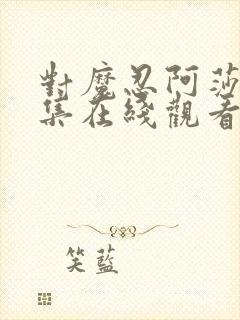 對魔忍阿莎
集在綫觀看
笑藍